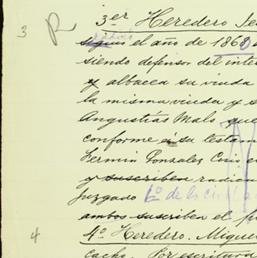 3 R 3er Heredero Je
siguió el año de 1868
siendo defensor del inter
y albacea su viuda
la misma viuda y s
Angustias Malo, que
conforme á su testam
Fermin Gonzalez Cosio e
y suscriben radica
Juzgado 6º de lo civil
ambos suscriben el p
4 4º Heredero. Migue
cacho. Por escritura